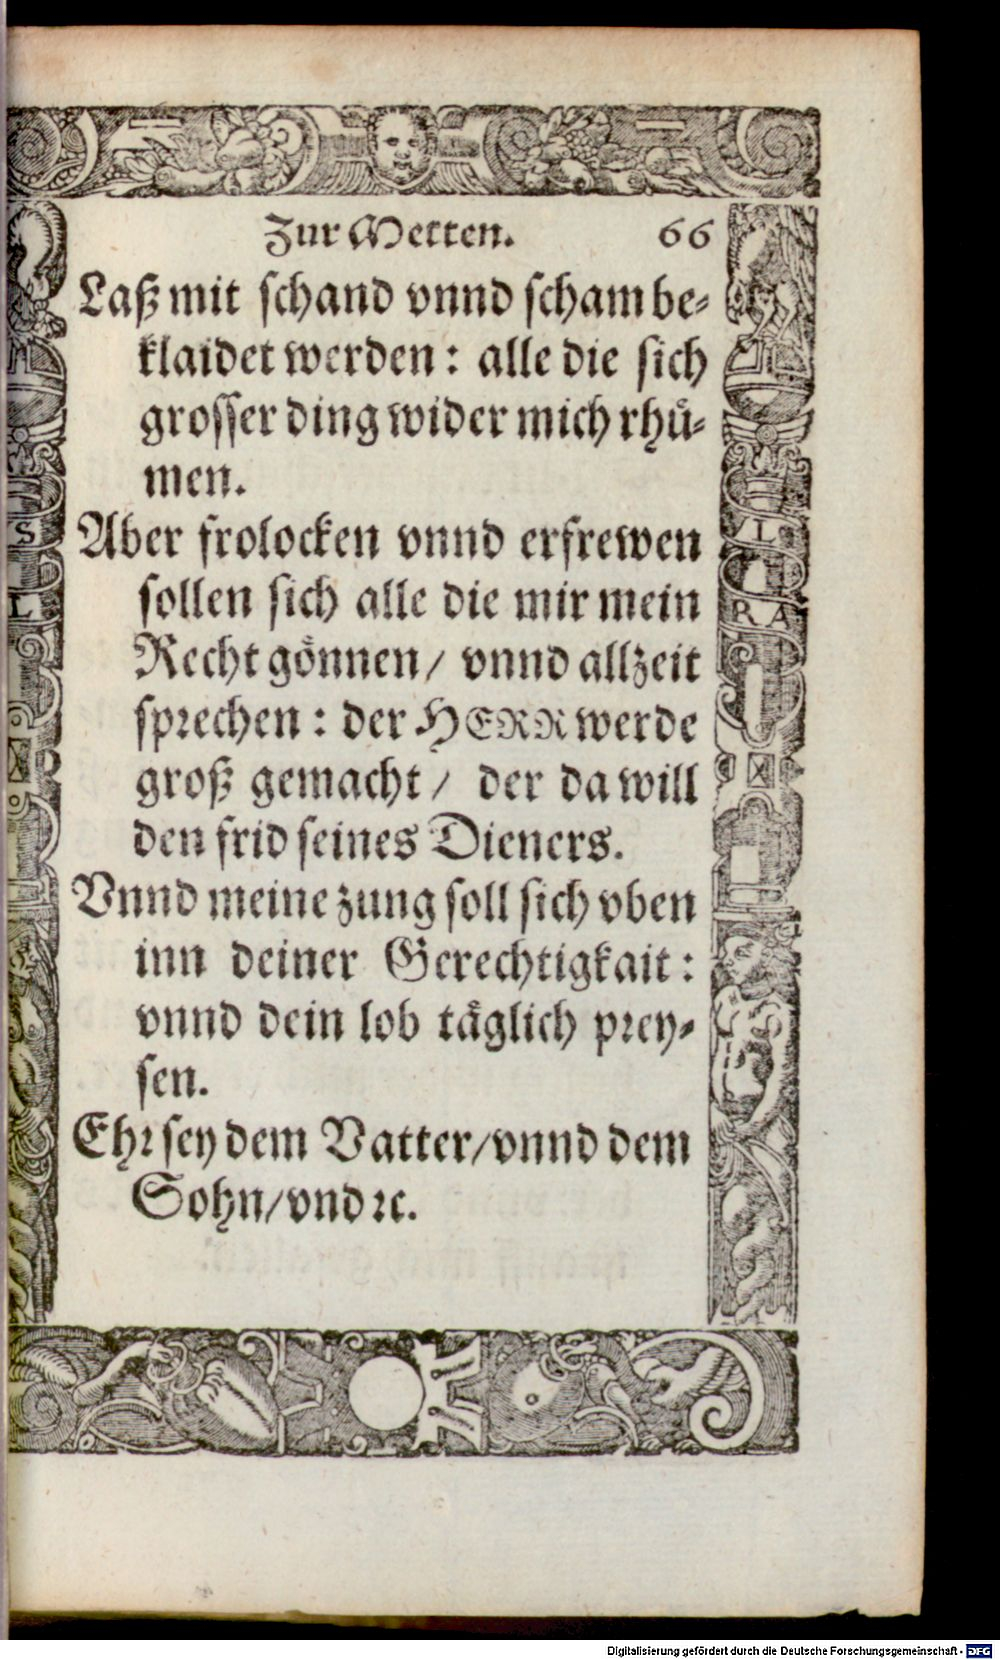 Zur Metten. 66
Laß mit schand vnnd scham be-
klaidet werden: alle die sich
grosser ding wider mich rhuͤ-
men.
Aber frolocken vnnd erfrewen
sollen sich alle die mir mein
Recht goͤnnen/ vnnd allzeit
sprechen: der HERR werde
groß gemacht/ der da will
den frid seines Dieners.
Vnnd meine zung soll sich vben
inn deiner Gerechtigkait:
vnnd dein lob taͤglich prey-
sen.
Ehr sey dem Vatter/vnnd dem
Sohn/vnd ꝛc.
S
L
L
RA
Digitalisierung gefördert durch die Deutsche Forschungsgemeinschaft - DFG